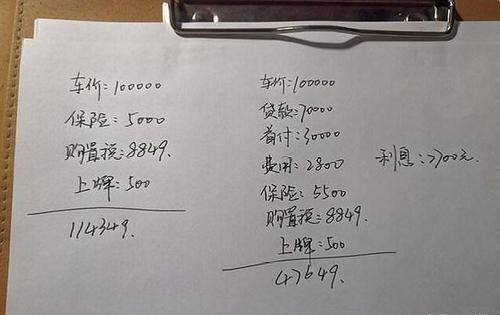 车价:100000
保险:5000
购置税:8849.
上牌:500
114349.
车价:100000
贷款:70000
首付:30000
费用:2800
利息:>700元.
保险:5500
购置税:8849.
上牌:500
47649.